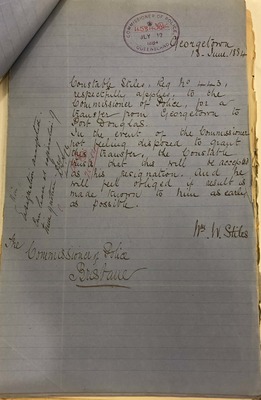 COMMISSIONER OF POLICE
QUEENSLAND
Georgetown
18 June 1884
Constable Stiles, Reg No 443,
respectfully applies, to the
Commissioner of Police, for a
transfer from Georgetown to
Port Douglas.
In the event of the Commissioner
not feeling disposed to grant
this transfer, the Constable
that this will be accepted
as his resignation. And he
will feel obliged if result is
made known to him as early
as possible.
Wm. W. Stiles
The
Commissioner of Police
Brisbane
Resignation accepted